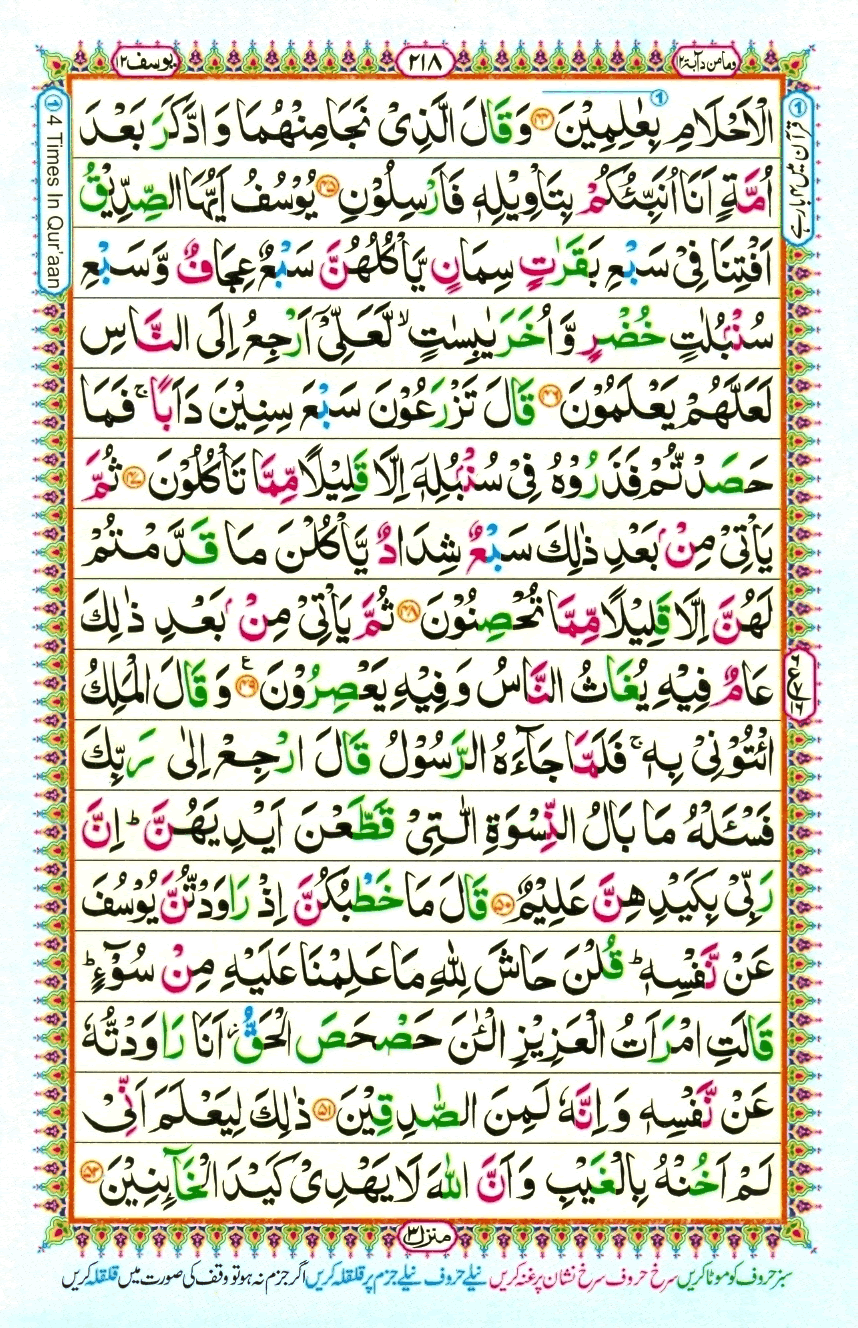 وما من دآبة ١٢
٢١٨
يوسف ١٢
قرآن میں ۴ بار ہے
4 Times In Qur'aan
الْاَحْلَامِ بِعٰلِمِيْنَ ﴿۴۴﴾ وَقَالَ الَّذِىْ نَجَا مِنْهُمَا وَادَّكَرَ بَعْدَ
اُمَّةٍ اَنَا اُنَبِّئُكُمْ بِتَاْوِيْلِهٖ فَاَرْسِلُوْنِ ﴿۴۵﴾ يُوْسُفُ اَيُّهَا الصِّدِّيْقُ
اَفْتِنَا فِىْ سَبْعِ بَقَرٰتٍ سِمَانٍ يَّاْكُلُهُنَّ سَبْعٌ عِجَافٌ وَّسَبْعِ
سُنْۢبُلٰتٍ خُضْرٍ وَّاُخَرَ يٰبِسٰتٍ ۙ لَّعَلِّىْۤ اَرْجِعُ اِلَى النَّاسِ
لَعَلَّهُمْ يَعْلَمُوْنَ ﴿۴۶﴾ قَالَ تَزْرَعُوْنَ سَبْعَ سِنِيْنَ دَاَبًا ۚ فَمَا
حَصَدْتُّمْ فَذَرُوْهُ فِىْ سُنْۢبُلِهٖۤ اِلَّا قَلِيْلًا مِّمَّا تَاْكُلُوْنَ ﴿۴۷﴾ ثُمَّ
يَاْتِىْ مِنْۢ بَعْدِ ذٰلِكَ سَبْعٌ شِدَادٌ يَّاْكُلْنَ مَا قَدَّمْتُمْ
لَهُنَّ اِلَّا قَلِيْلًا مِّمَّا تُحْصِنُوْنَ ﴿۴۸﴾ ثُمَّ يَاْتِىْ مِنْۢ بَعْدِ ذٰلِكَ
عَامٌ فِيْهِ يُغَاثُ النَّاسُ وَفِيْهِ يَعْصِرُوْنَ ﴿۴۹﴾ وَقَالَ الْمَلِكُ
ائْتُوْنِىْ بِهٖ ۚ فَلَمَّا جَآءَهُ الرَّسُوْلُ قَالَ ارْجِعْ اِلٰى رَبِّكَ
فَسْـَٔلْهُ مَا بَالُ النِّسْوَةِ الّٰتِىْ قَطَّعْنَ اَيْدِيَهُنَّ ؕ اِنَّ
رَبِّىْ بِكَيْدِهِنَّ عَلِيْمٌ ﴿۵۰﴾ قَالَ مَا خَطْبُكُنَّ اِذْ رَاوَدْتُّنَّ يُوْسُفَ
عَنْ نَّفْسِهٖ ؕ قُلْنَ حَاشَ لِلّٰهِ مَا عَلِمْنَا عَلَيْهِ مِنْ سُوْٓءٍ ؕ
قَالَتِ امْرَاَتُ الْعَزِيْزِ الْـٰٔنَ حَصْحَصَ الْحَقُّ اَنَا رَاوَدْتُّهٗ
عَنْ نَّفْسِهٖ وَاِنَّهٗ لَمِنَ الصّٰدِقِيْنَ ﴿۵۱﴾ ذٰلِكَ لِيَعْلَمَ اَنِّىْ
لَمْ اَخُنْهُ بِالْغَيْبِ وَاَنَّ اللّٰهَ لَا يَهْدِىْ كَيْدَ الْخَآئِنِيْنَ ﴿۵۲﴾
منزل ٣
سبز حروف کو موٹا کریں سرخ حروف سرخ نشان پر غنہ کریں نیلے حروف نیلے جزم پر قلقلہ کریں اگر جزم نہ ہو تو وقف کی صورت میں قلقلہ کریں